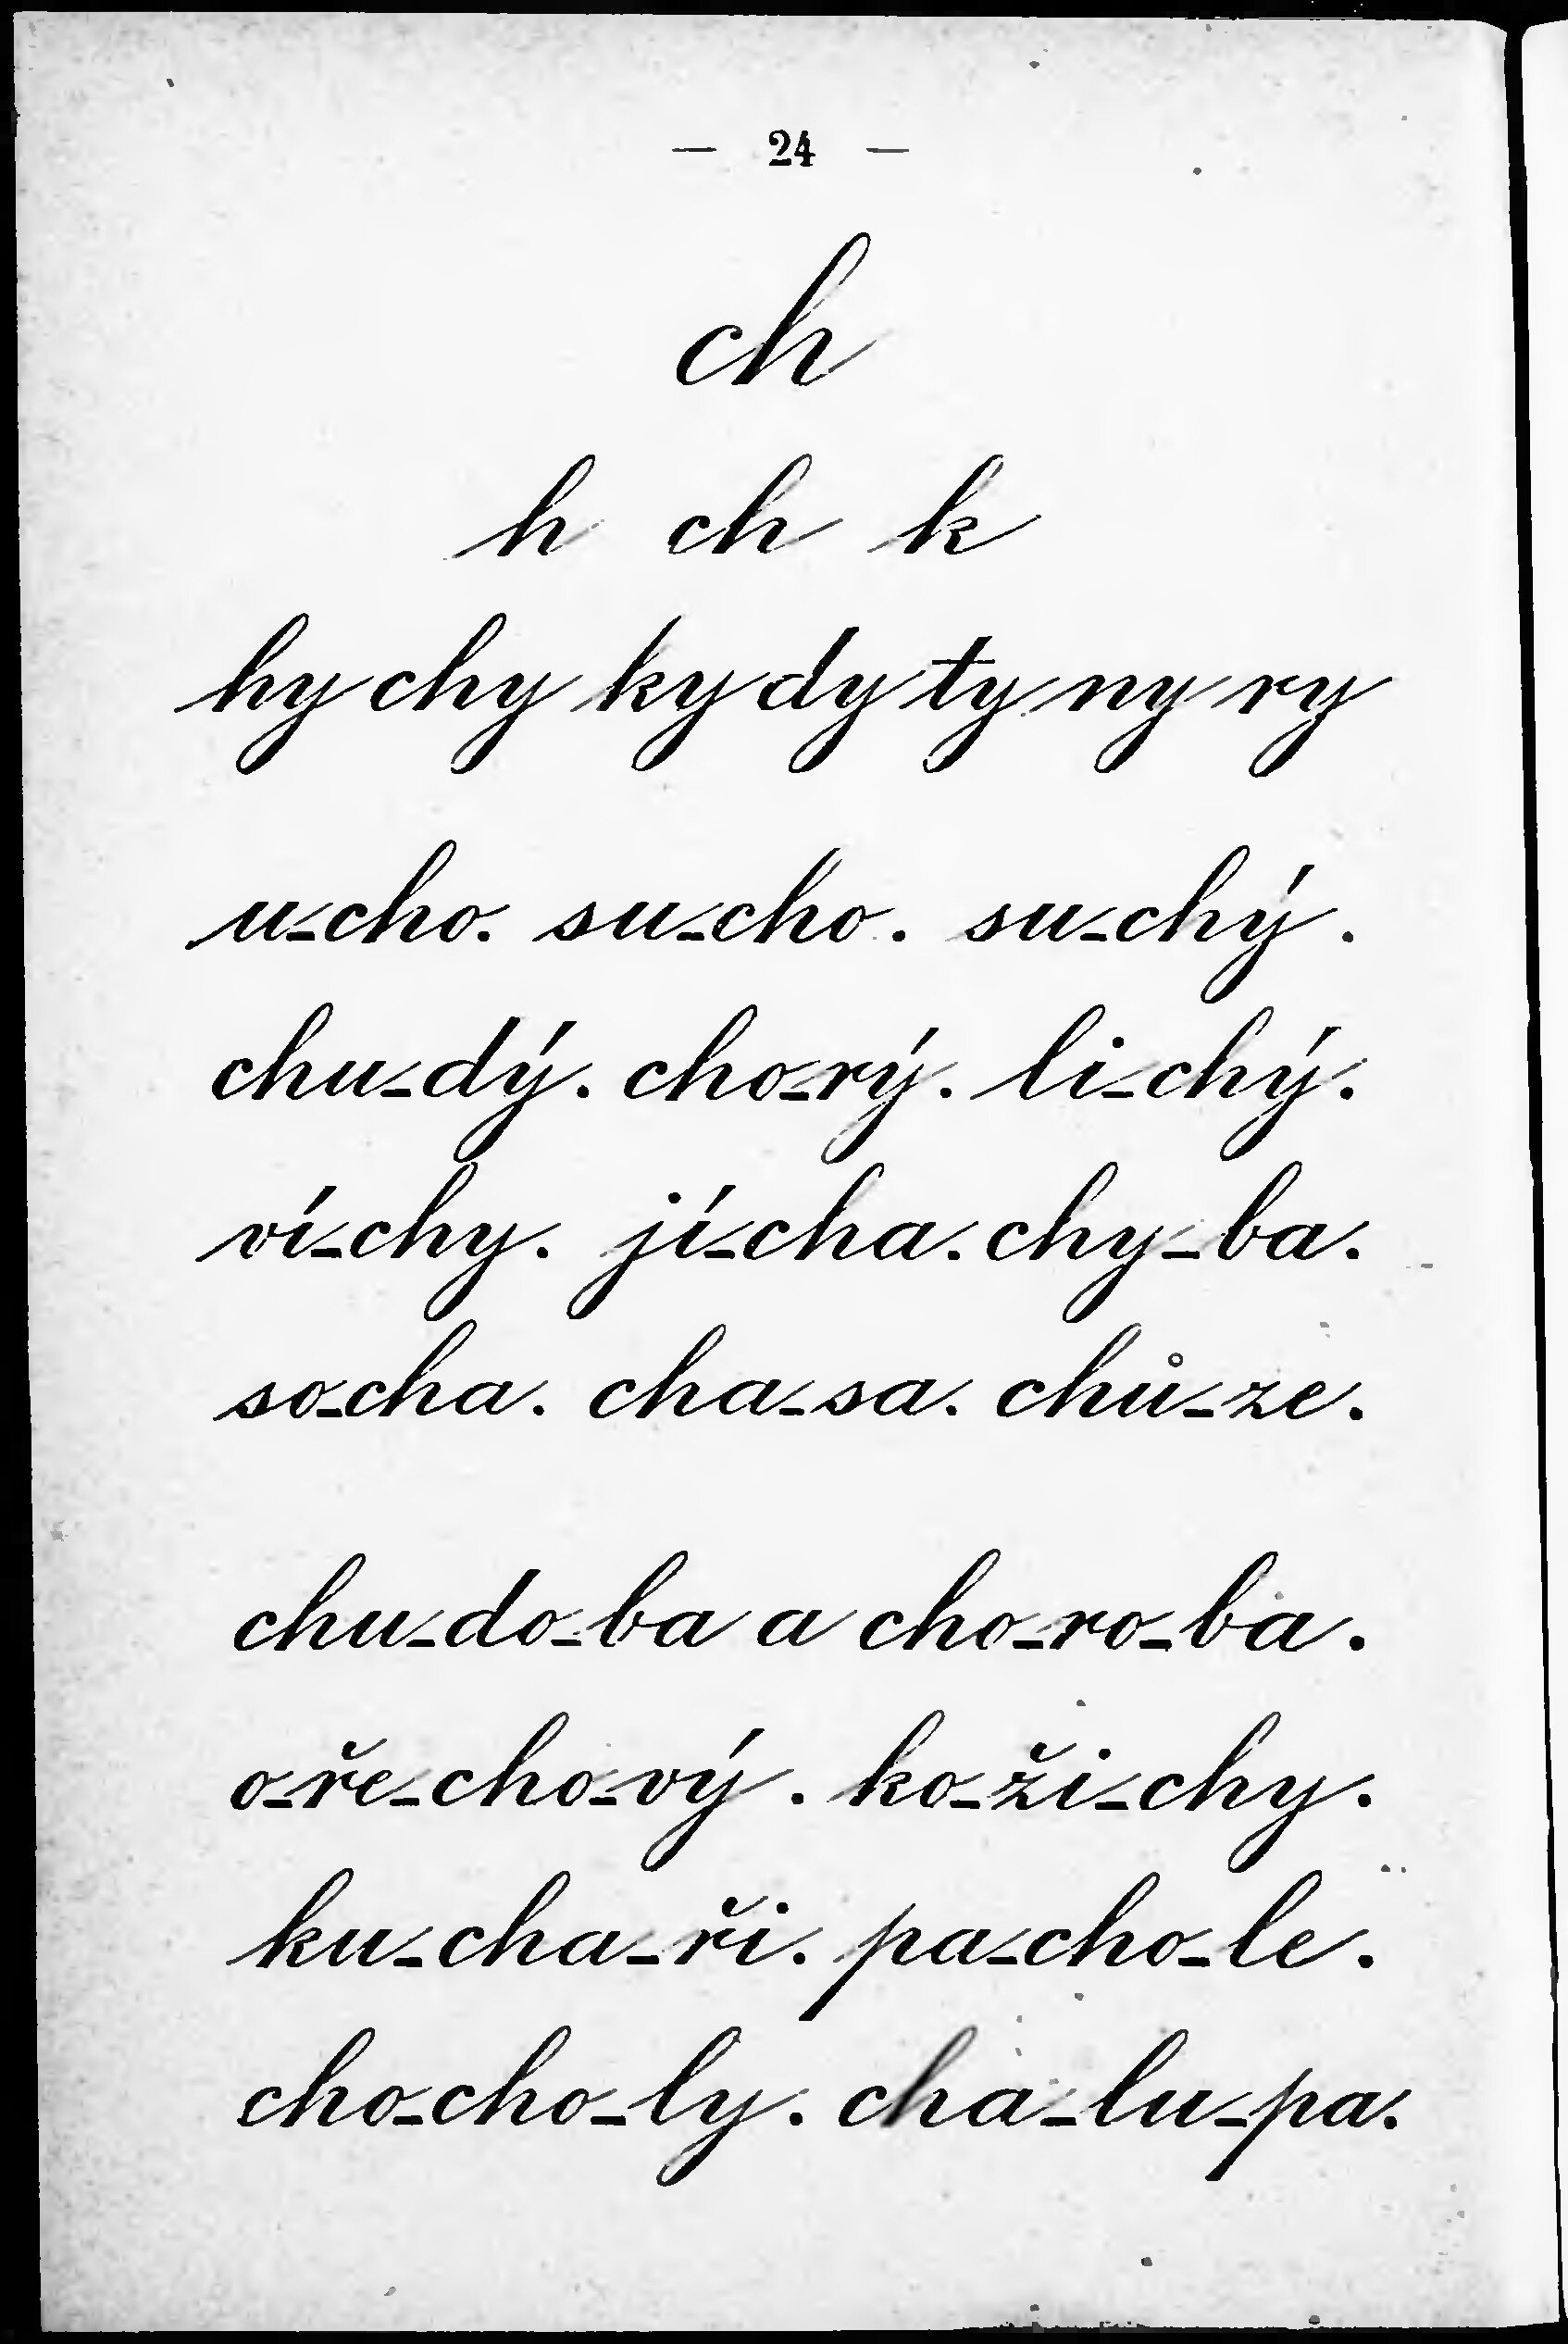 — 24 —
ch
h ch k
hy chy ky dy ty ny ry
u-cho. su-cho. su-chý.
chu-dý. cho-rý. li-chý.
ví-chy. jí-cha. chy-ba.
so-cha. cha-sa. chů-ze.
chu-do-ba a cho-ro-ba.
o-ře-cho-vý. ko-ži-chy.
ku-cha-ři. pa-cho-le.
cho-cho-ly. cha-lu-pa.